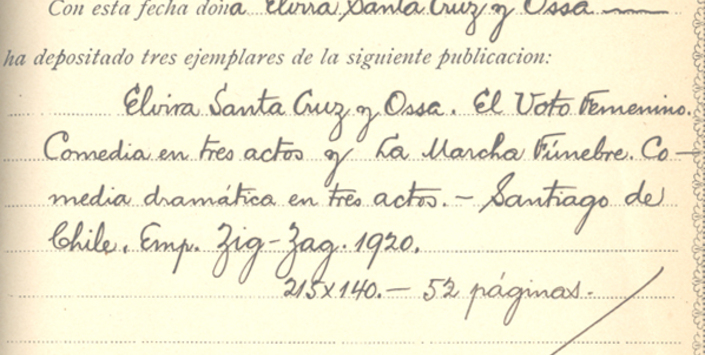 Con esta fecha doña Elvira Santa Cruz y Ossa —
ha depositado tres ejemplares de la siguiente publicacion:
Elvira Santa Cruz y Ossa. El Voto Femenino.
Comedia en tres actos y La Marcha Fúnebre. Co—
media dramática en tres actos. — Santiago de
Chile. Emp. Zig-Zag. 1920.
215x140. — 52 páginas.